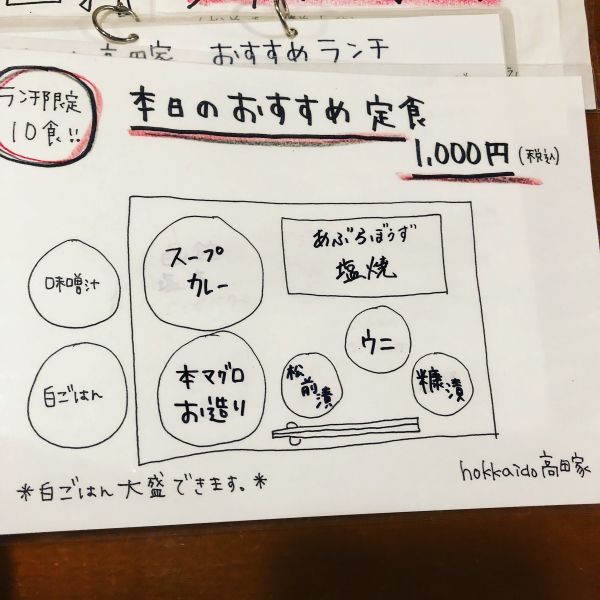 高田家 おすすめランチ
ランチ限定
10食!!
本日のおすすめ定食
1,000円(税込)
スープ
カレー
あぶらぼうず
塩焼
味噌汁
ウニ
白ごはん
本マグロ
お造り
松前漬
糠漬
*白ごはん大盛できます。*
hokkaido高田家